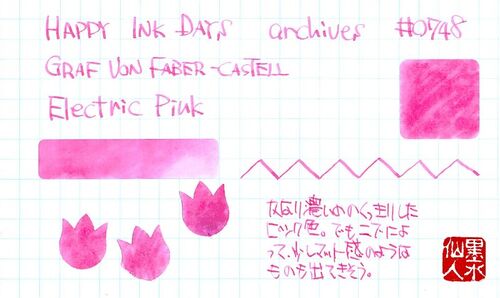 HAPPY INK DAYS archives #0748
GRAF VON FABER-CASTELL
Electric Pink
かなり濃いめのくっきりした
ピンク色。でもニブによ
って、少しマット感のような
ものも出てきそう。
墨水
仙人